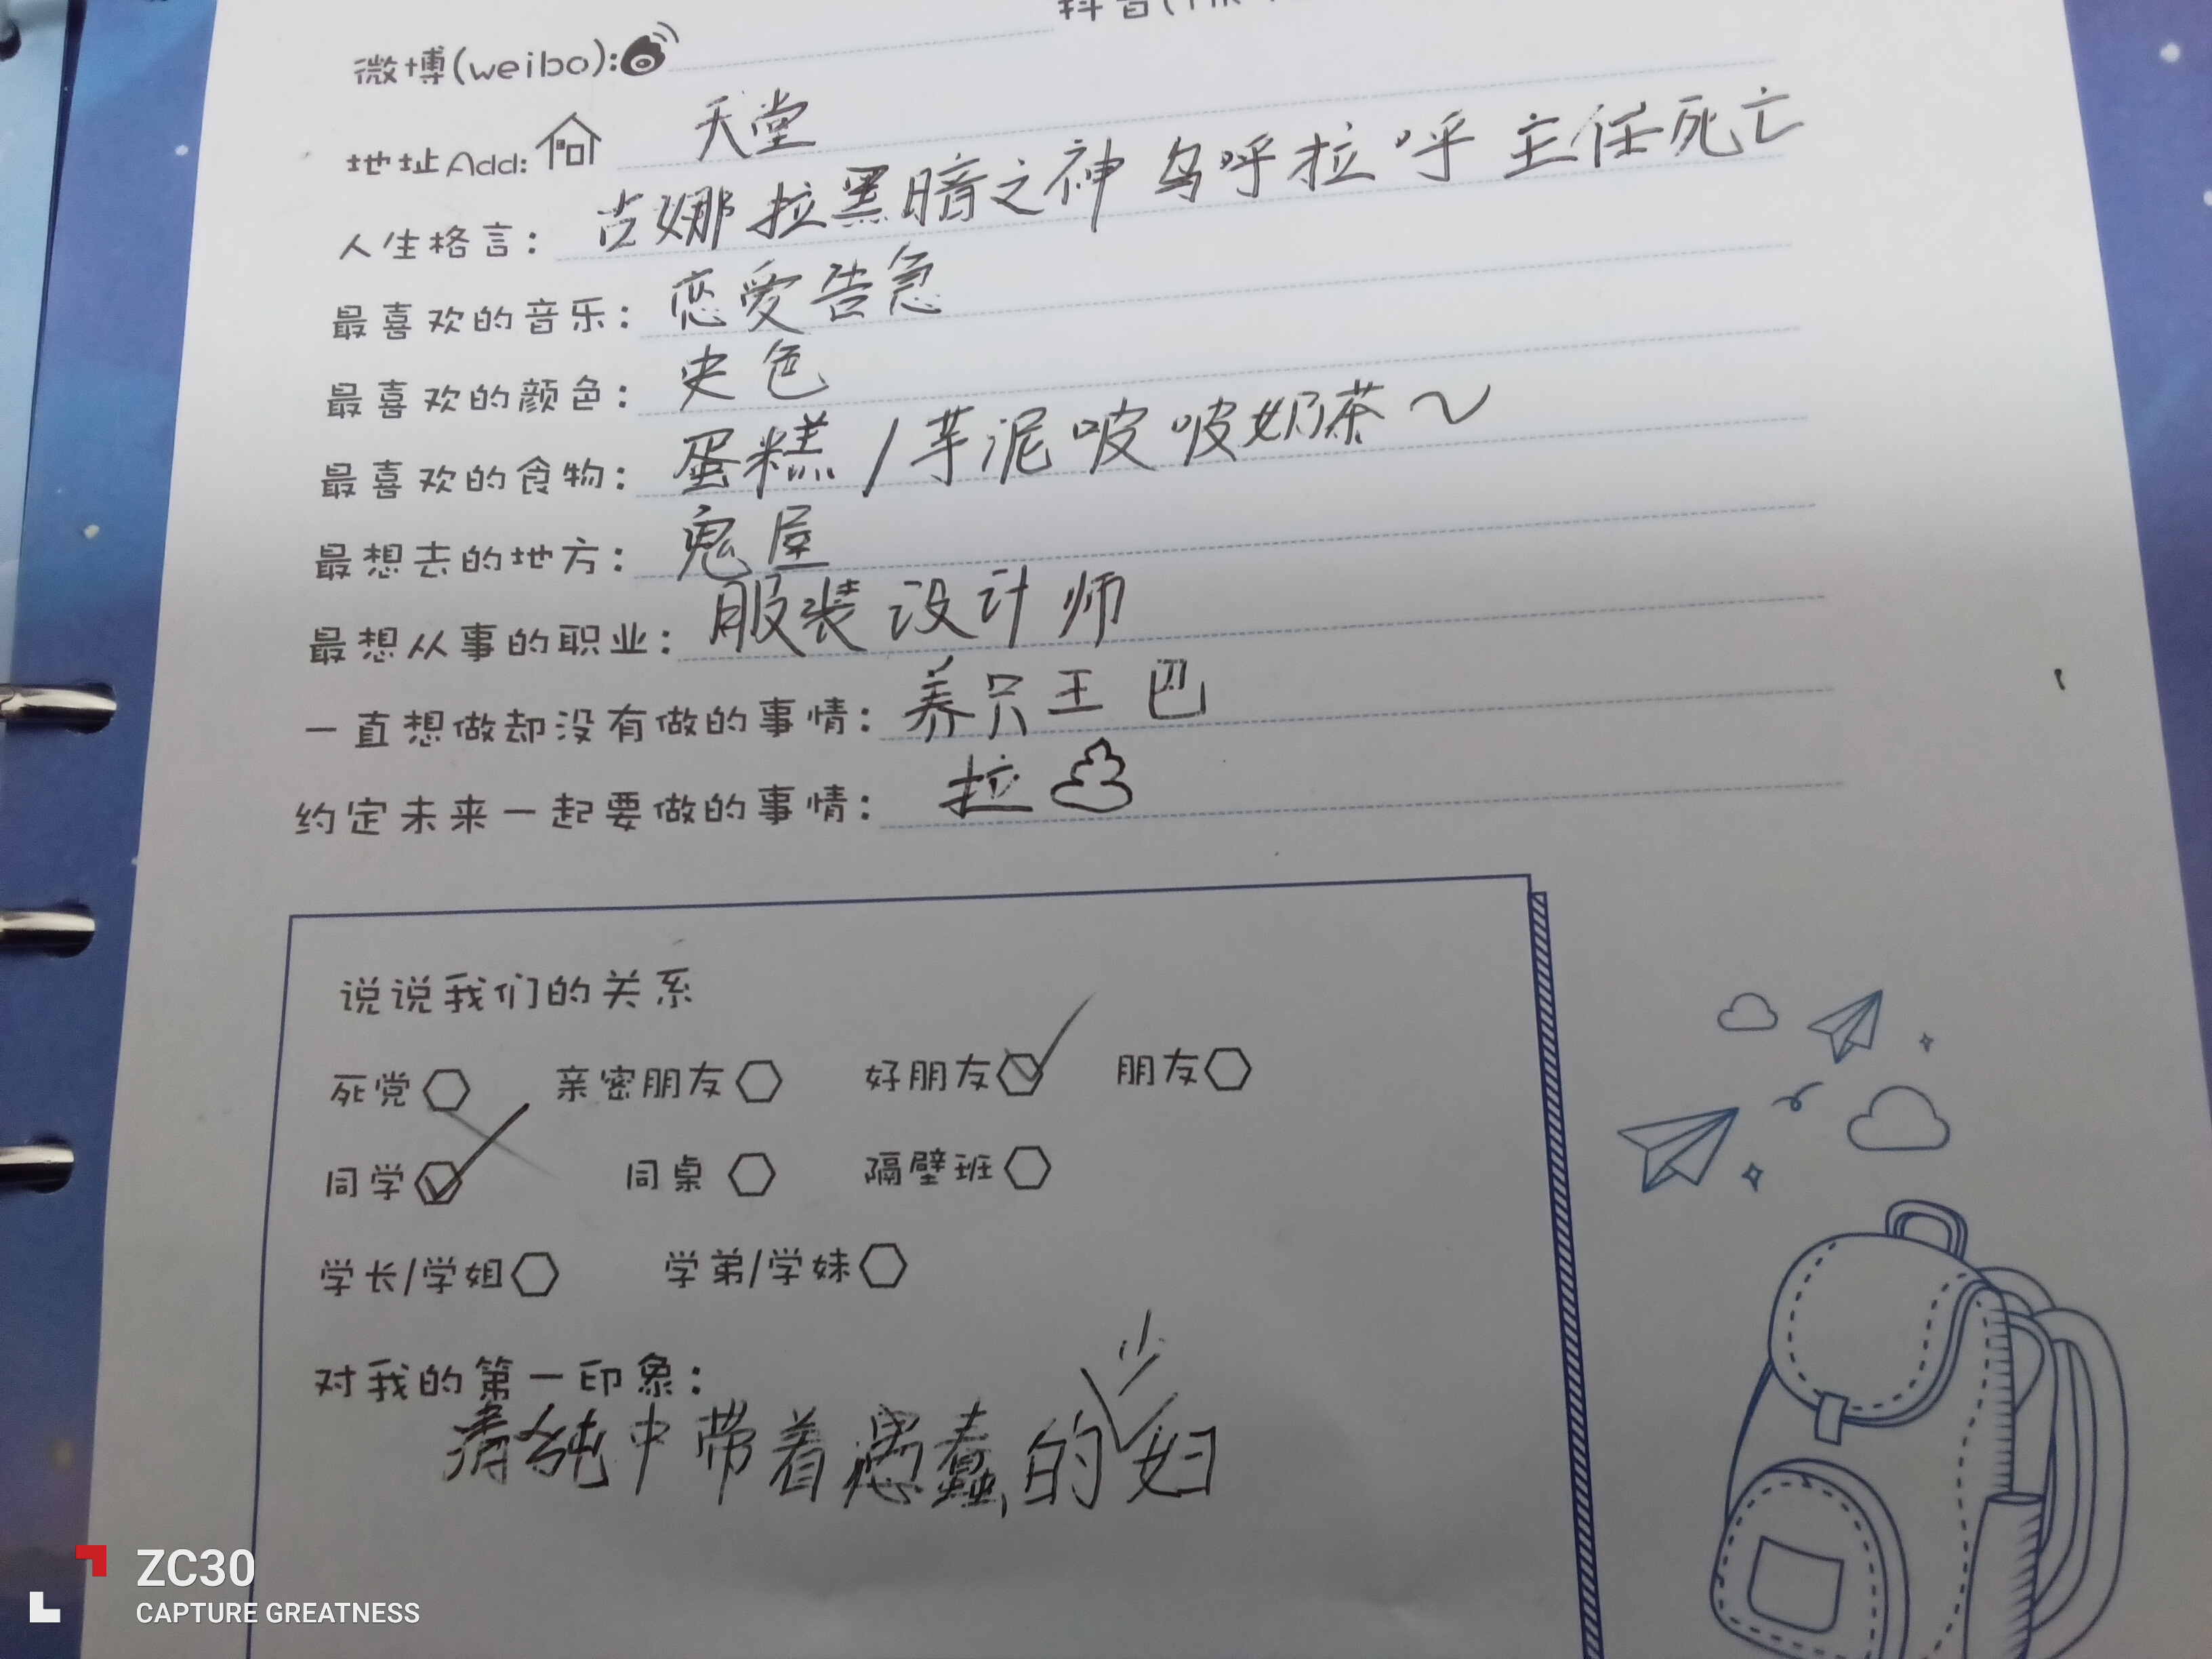 抖音(Tik
微博(weibo):
地址Add: 天堂
人生格言: 古娜拉黑暗之神 乌呼拉呼 主任死亡
最喜欢的音乐: 恋爱告急
最喜欢的颜色: 史色
最喜欢的食物: 蛋糕/芋泥啵啵奶茶~
最想去的地方: 鬼屋
最想从事的职业: 服装设计师
一直想做却没有做的事情: 养只王巴
约定未来一起要做的事情: 拉
说说我们的关系
死党 亲密朋友 好朋友 朋友
同学 同桌 隔壁班
学长/学姐 学弟/学妹
对我的第一印象:
清纯中带着愚蠢的妇
ZC30
CAPTURE GREATNESS